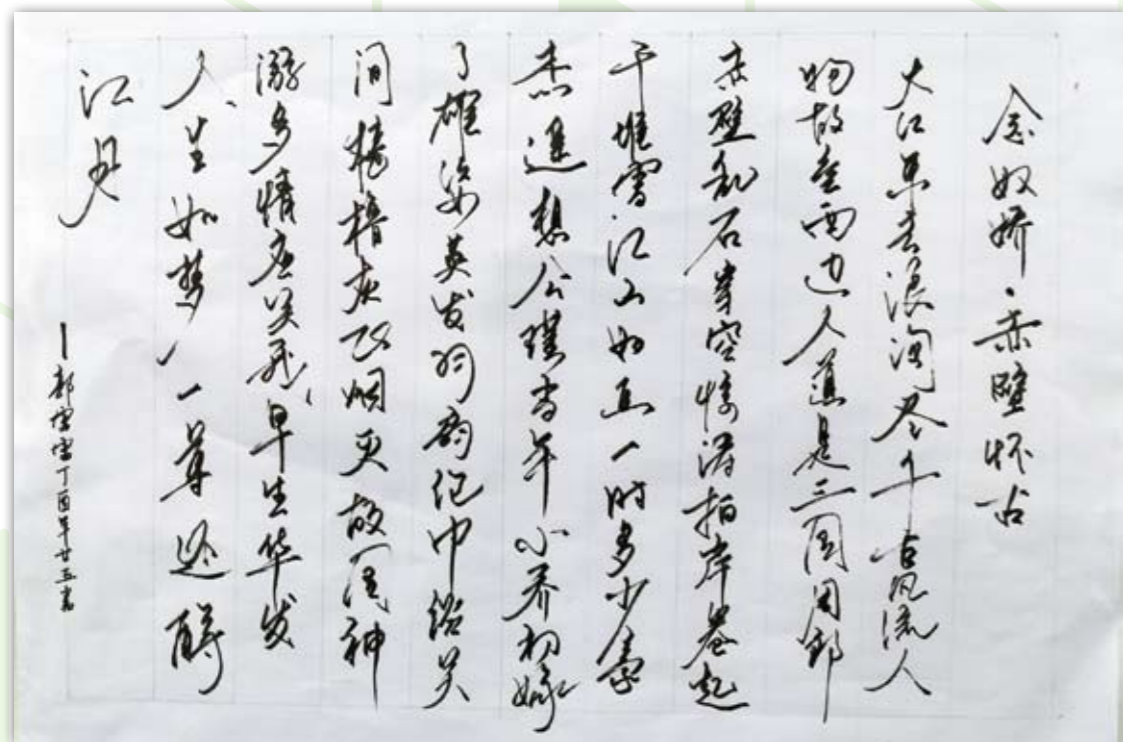 念奴娇·赤壁怀古
大江东去浪淘尽千古风流人
物故垒西边人道是三国周郎
赤壁乱石穿空惊涛拍岸卷起
千堆雪江山如画一时多少豪
杰遥想公瑾当年小乔初嫁
了雄姿英发羽扇纶巾谈笑
间樯橹灰飞烟灭故国神
游多情应笑我早生华发
人生如梦一尊还酹
江月
丁酉年廿五书